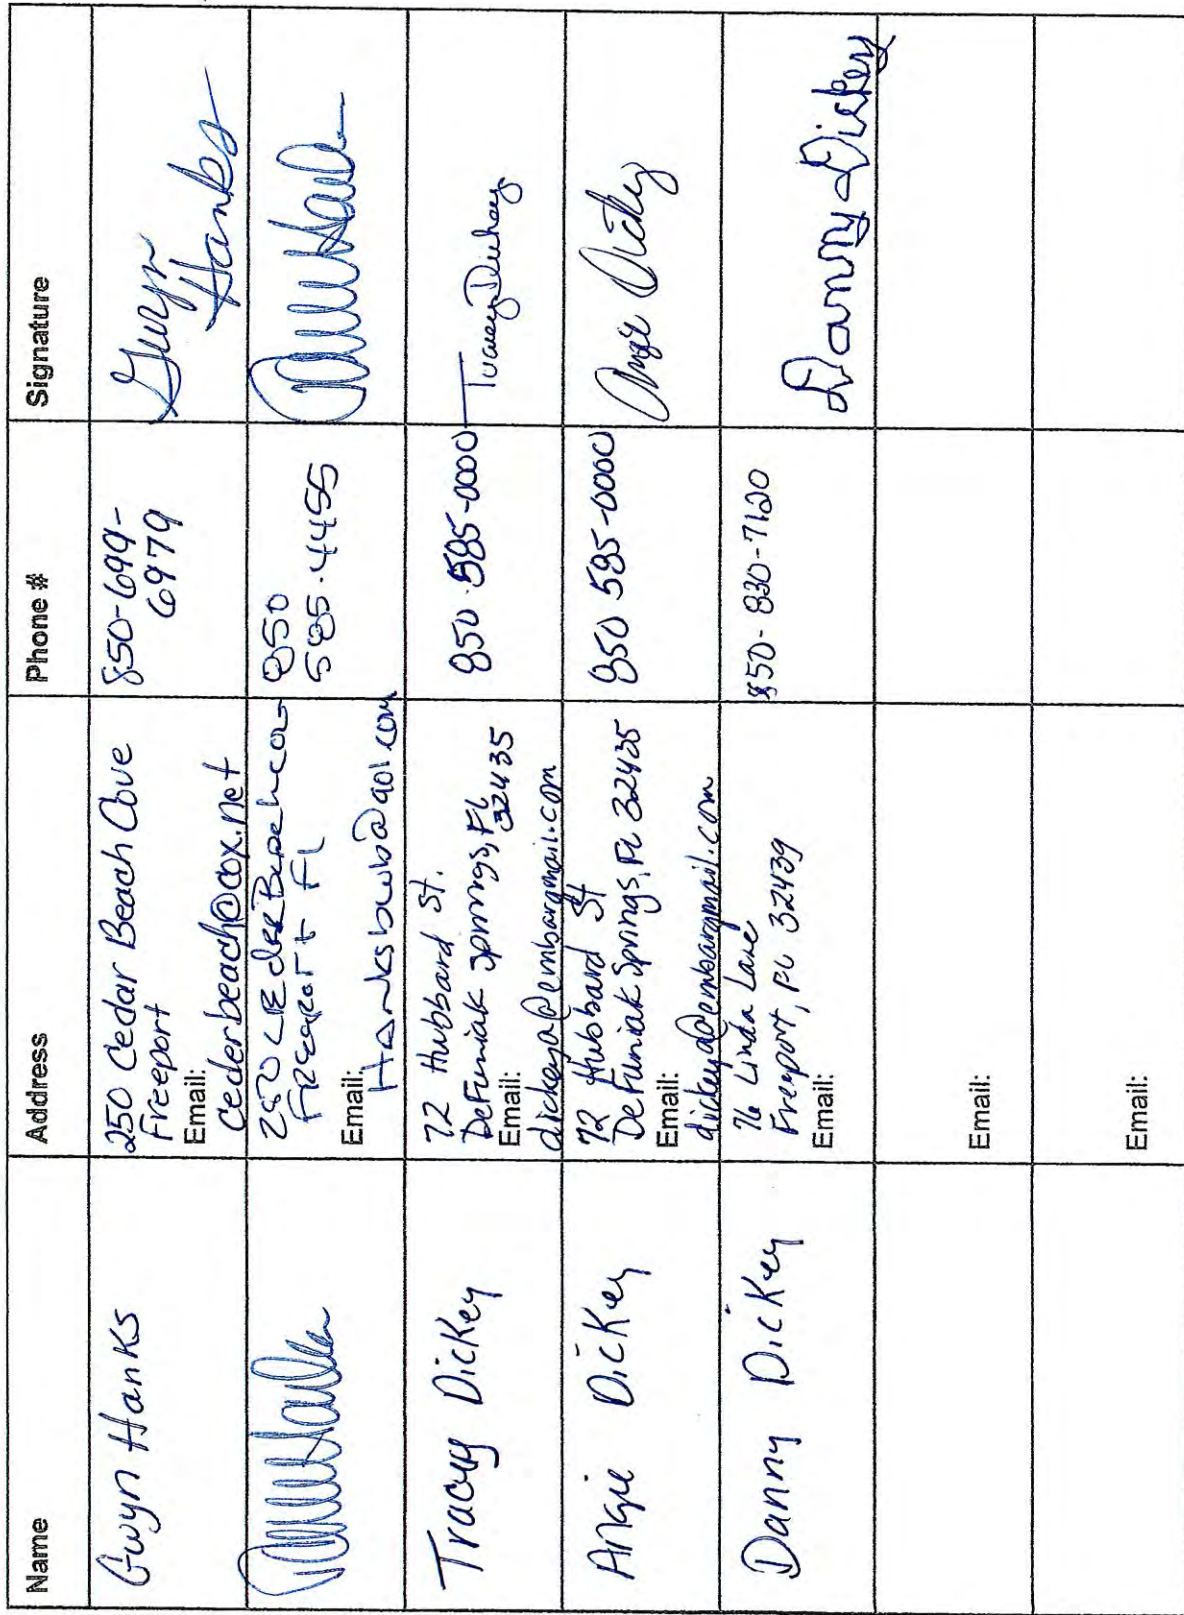 Name Address Phone # Signature
Gwyn Hanks
250 Cedar Beach Cove
Freeport
Email:
cederbeach@cox.net
850-699-
6979
Gwyn
Hanks
Freeport FL
Email:
Hanksbwb@aol.com
850
585-4455
Tracey Dickey
72 Hubbard St.
DeFuniak Springs, FL
32435
Email:
dickeya@embarqmail.com
850-585-0000
Tracey Dickey
Angie Dickey
72 Hubbard St
DeFuniak Springs, FL 32435
Email:
dickeya@embarqmail.com
850 585-0000
Angie Dickey
Danny Dickey
76 Linda Lane
Freeport, FL 32439
Email:
850-830-7120
Danny Dickey
Email:
Email: